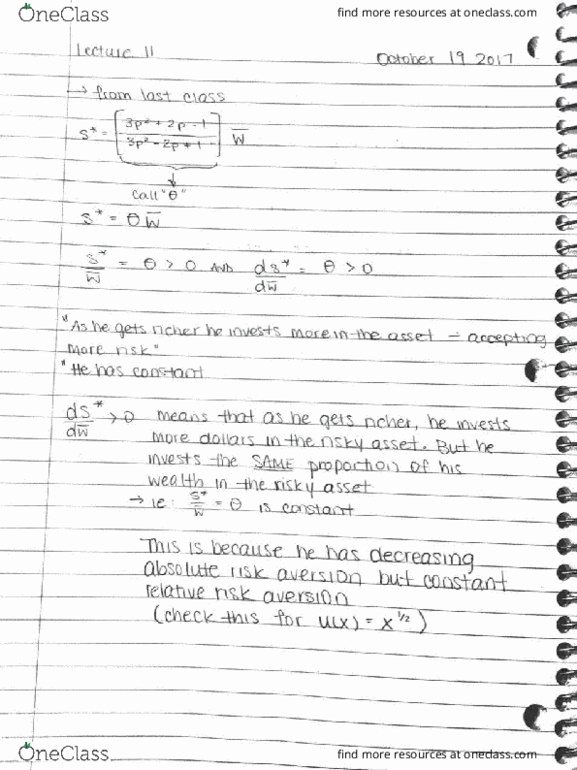 OneClass
find more resources at oneclass.com
Lecture 11
October 19 2017
→ from last class
s* = [3p² + 2p - 1 / 3p² - 2p + 1] W̅
call "θ"
s* = θ W̅
s*/W̅ = θ > 0 AND ds*/dW̅ = θ > 0
"As he gets richer he invests more in the asset - accepting
more risk"
"He has constant
ds*/dW̅ > 0 means that as he gets richer, he invests
more dollars in the risky asset. But he
invests the SAME proportion of his
wealth in the risky asset
→ ie: s*/W̅ = θ is constant
This is because he has decreasing
absolute risk aversion but constant
relative risk aversion
(check this for u(x) = x^1/2)
OneClass
find more resources at oneclass.com